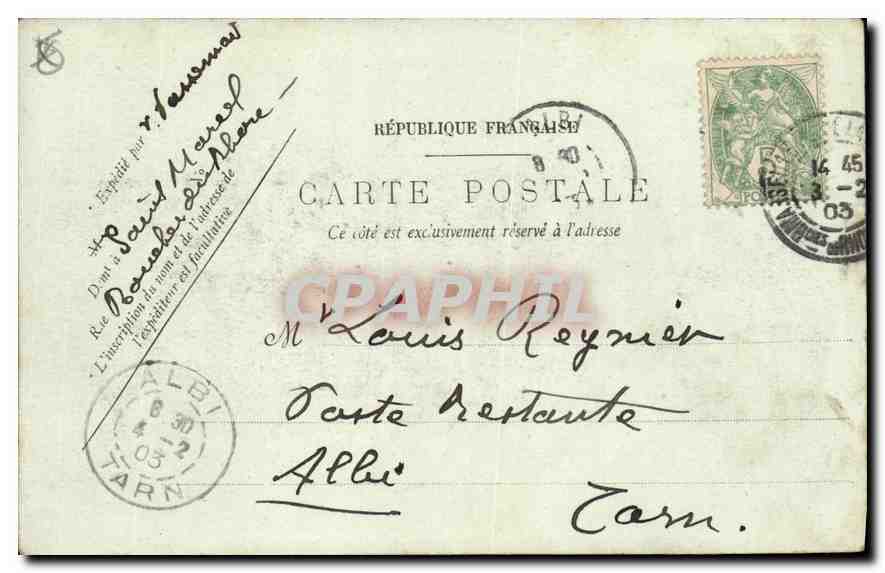 Expédié par V. Passemar
M
Demt à Saint Marcel
Rue Bouches du Rhone
L'inscription du nom et de l'adresse de
l'expéditeur est facultative
RÉPUBLIQUE FRANÇAISE
CARTE POSTALE
Ce côté est exclusivement réservé à l'adresse
ALBI
8 30
14 45
3 - 2
03
CPAPHIL
Mr Louis Reynier
Poste Restante
Albi
Tarn.
ALBI
8 30
4 - 2
03
TARN